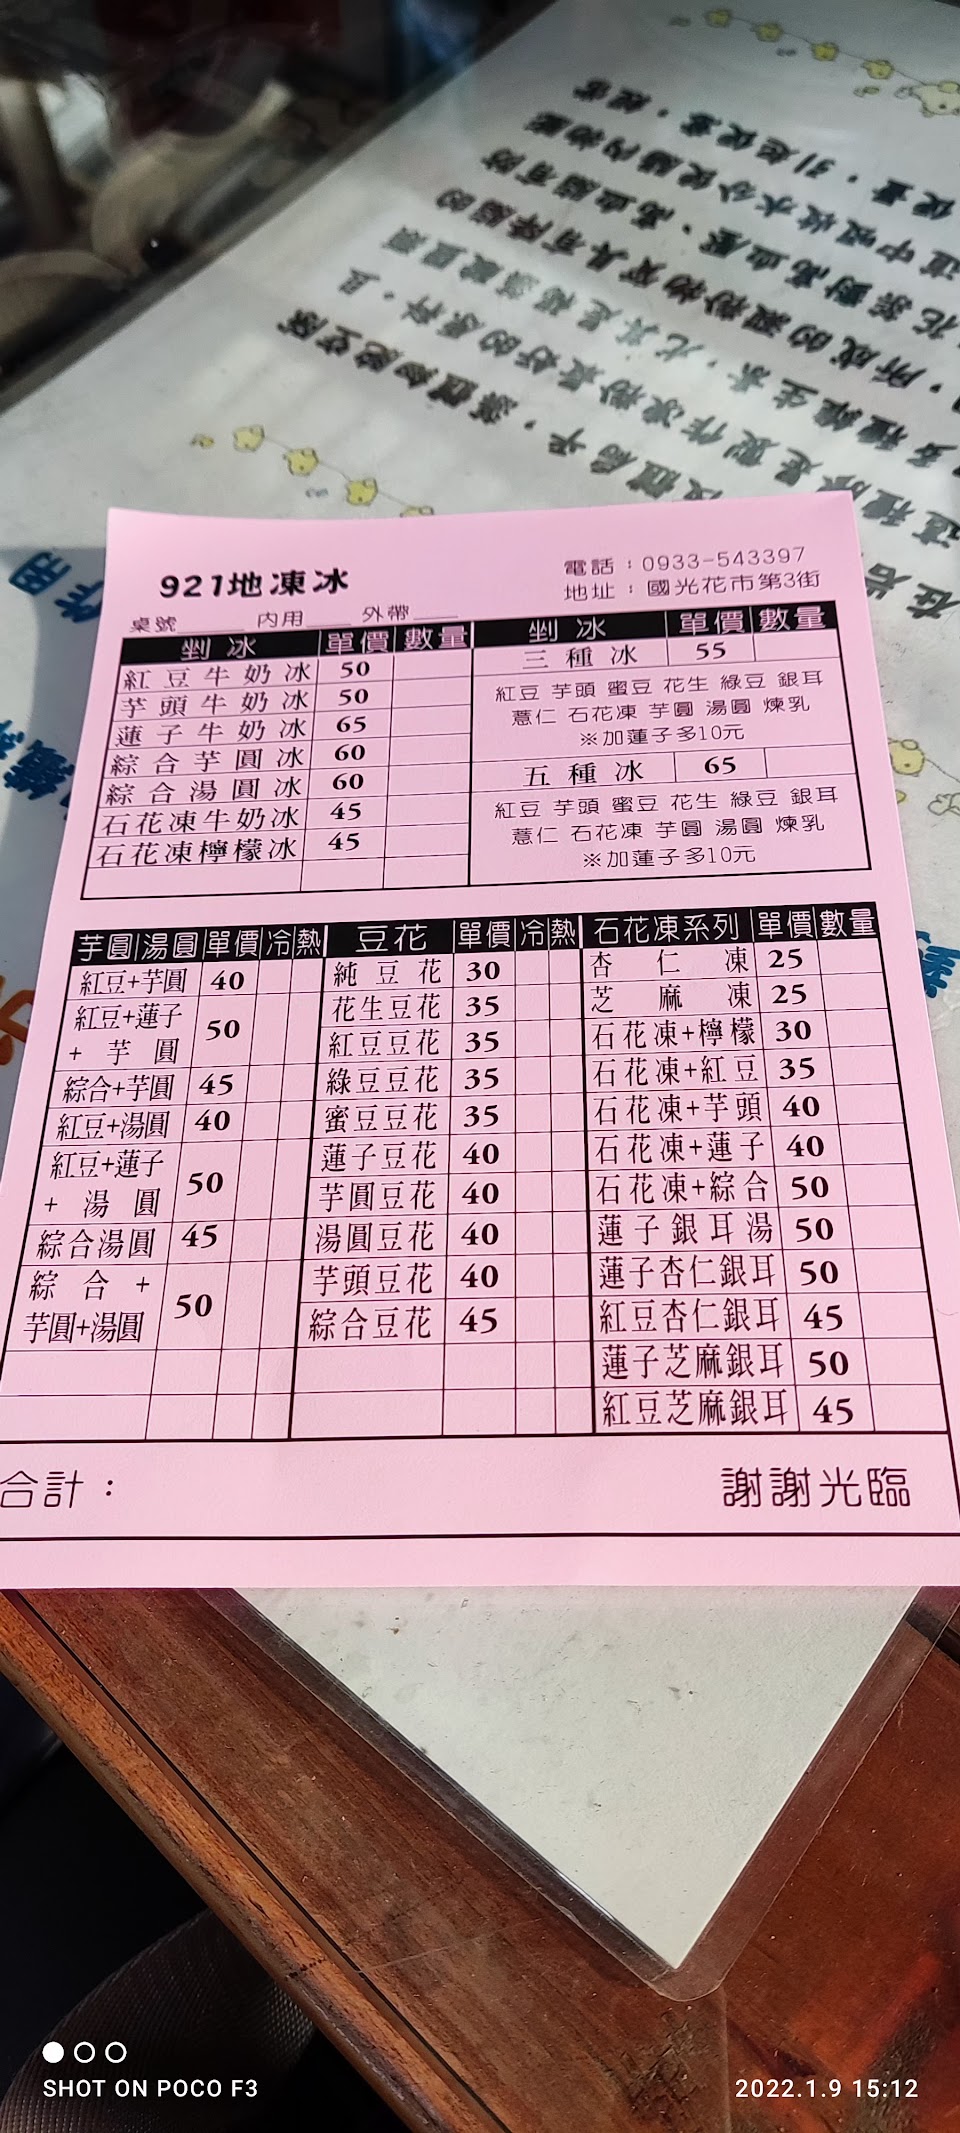 921地凍冰
電話：0933-543397
地址：國光花市第3街
桌號 內用 外帶
剉冰 單價 數量
紅豆牛奶冰 50
芋頭牛奶冰 50
蓮子牛奶冰 65
綜合芋圓冰 60
綜合湯圓冰 60
石花凍牛奶冰 45
石花凍檸檬冰 45
剉冰 單價 數量
三種冰 55
紅豆 芋頭 蜜豆 花生 綠豆 銀耳
薏仁 石花凍 芋圓 湯圓 煉乳
※加蓮子多10元
五種冰 65
紅豆 芋頭 蜜豆 花生 綠豆 銀耳
薏仁 石花凍 芋圓 湯圓 煉乳
※加蓮子多10元
芋圓 湯圓 單價 冷 熱
紅豆+芋圓 40
紅豆+蓮子
+芋圓 50
綜合+芋圓 45
紅豆+湯圓 40
紅豆+蓮子
+湯圓 50
綜合湯圓 45
綜合+
芋圓+湯圓 50
豆花 單價 冷 熱
純豆花 30
花生豆花 35
紅豆豆花 35
綠豆豆花 35
蜜豆豆花 35
蓮子豆花 40
芋圓豆花 40
湯圓豆花 40
芋頭豆花 40
綜合豆花 45
石花凍系列 單價 數量
杏仁凍 25
芝麻凍 25
石花凍+檸檬 30
石花凍+紅豆 35
石花凍+芋頭 40
石花凍+蓮子 40
石花凍+綜合 50
蓮子銀耳湯 50
蓮子杏仁銀耳 50
紅豆杏仁銀耳 45
蓮子芝麻銀耳 50
紅豆芝麻銀耳 45
合計：
謝謝光臨
SHOT ON POCO F3
2022.1.9 15:12